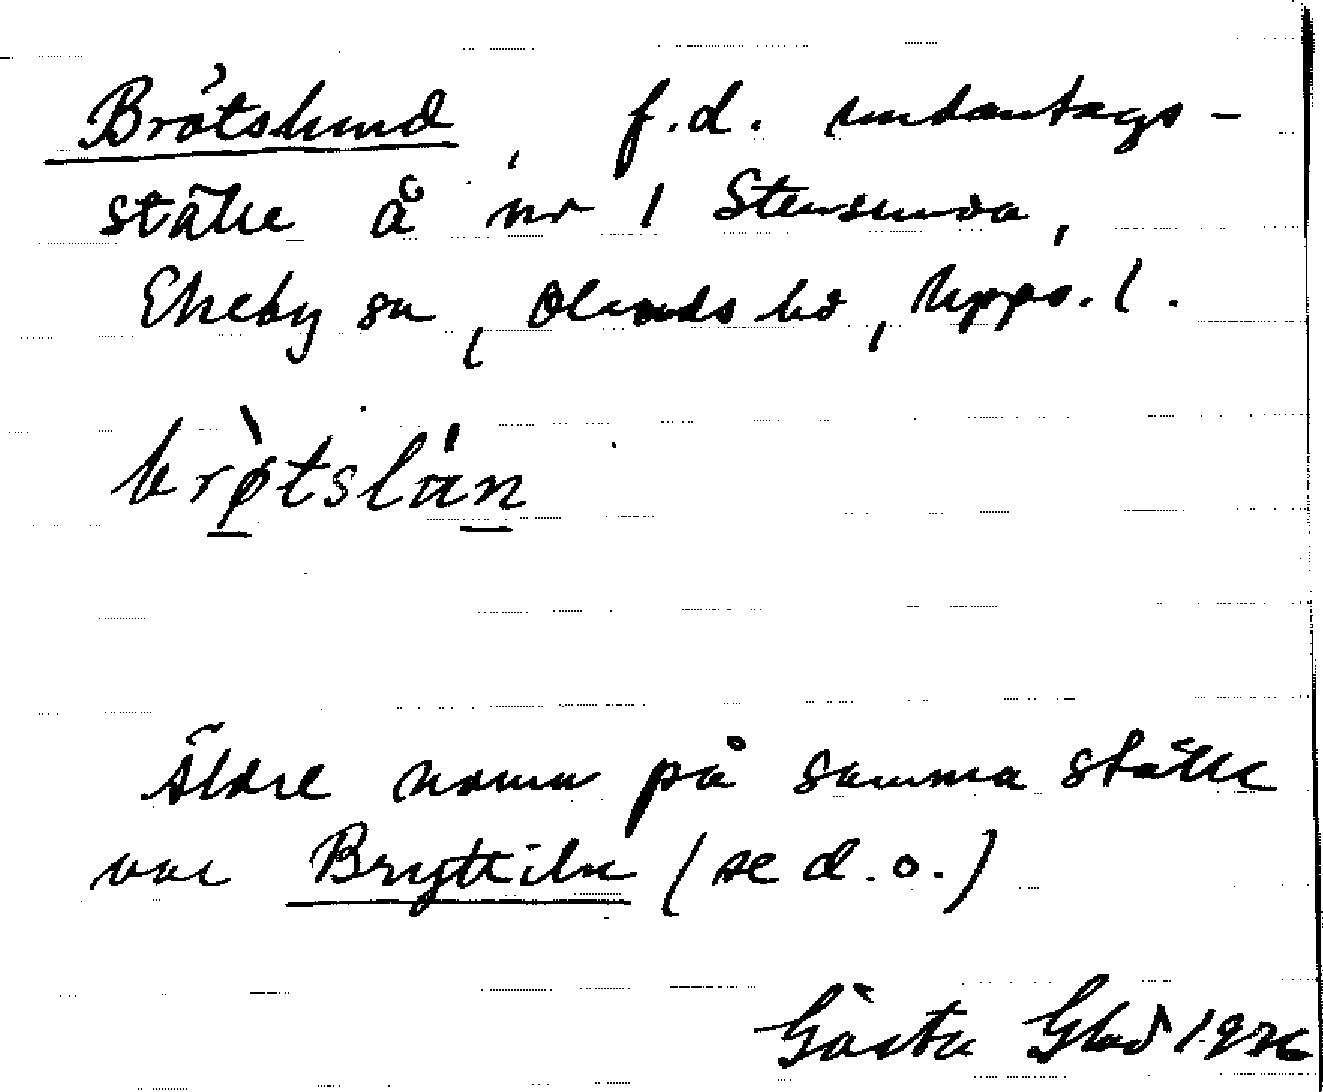 Brötslund, f.d. undantags-
ställe å nr 1 Stensunda,
Ekeby sn, Olands hd, Upps. l.
brø̀tslán
Äldre namn på samma ställe
var Bryttiln (se d.o.)
Gösta Glad 1926